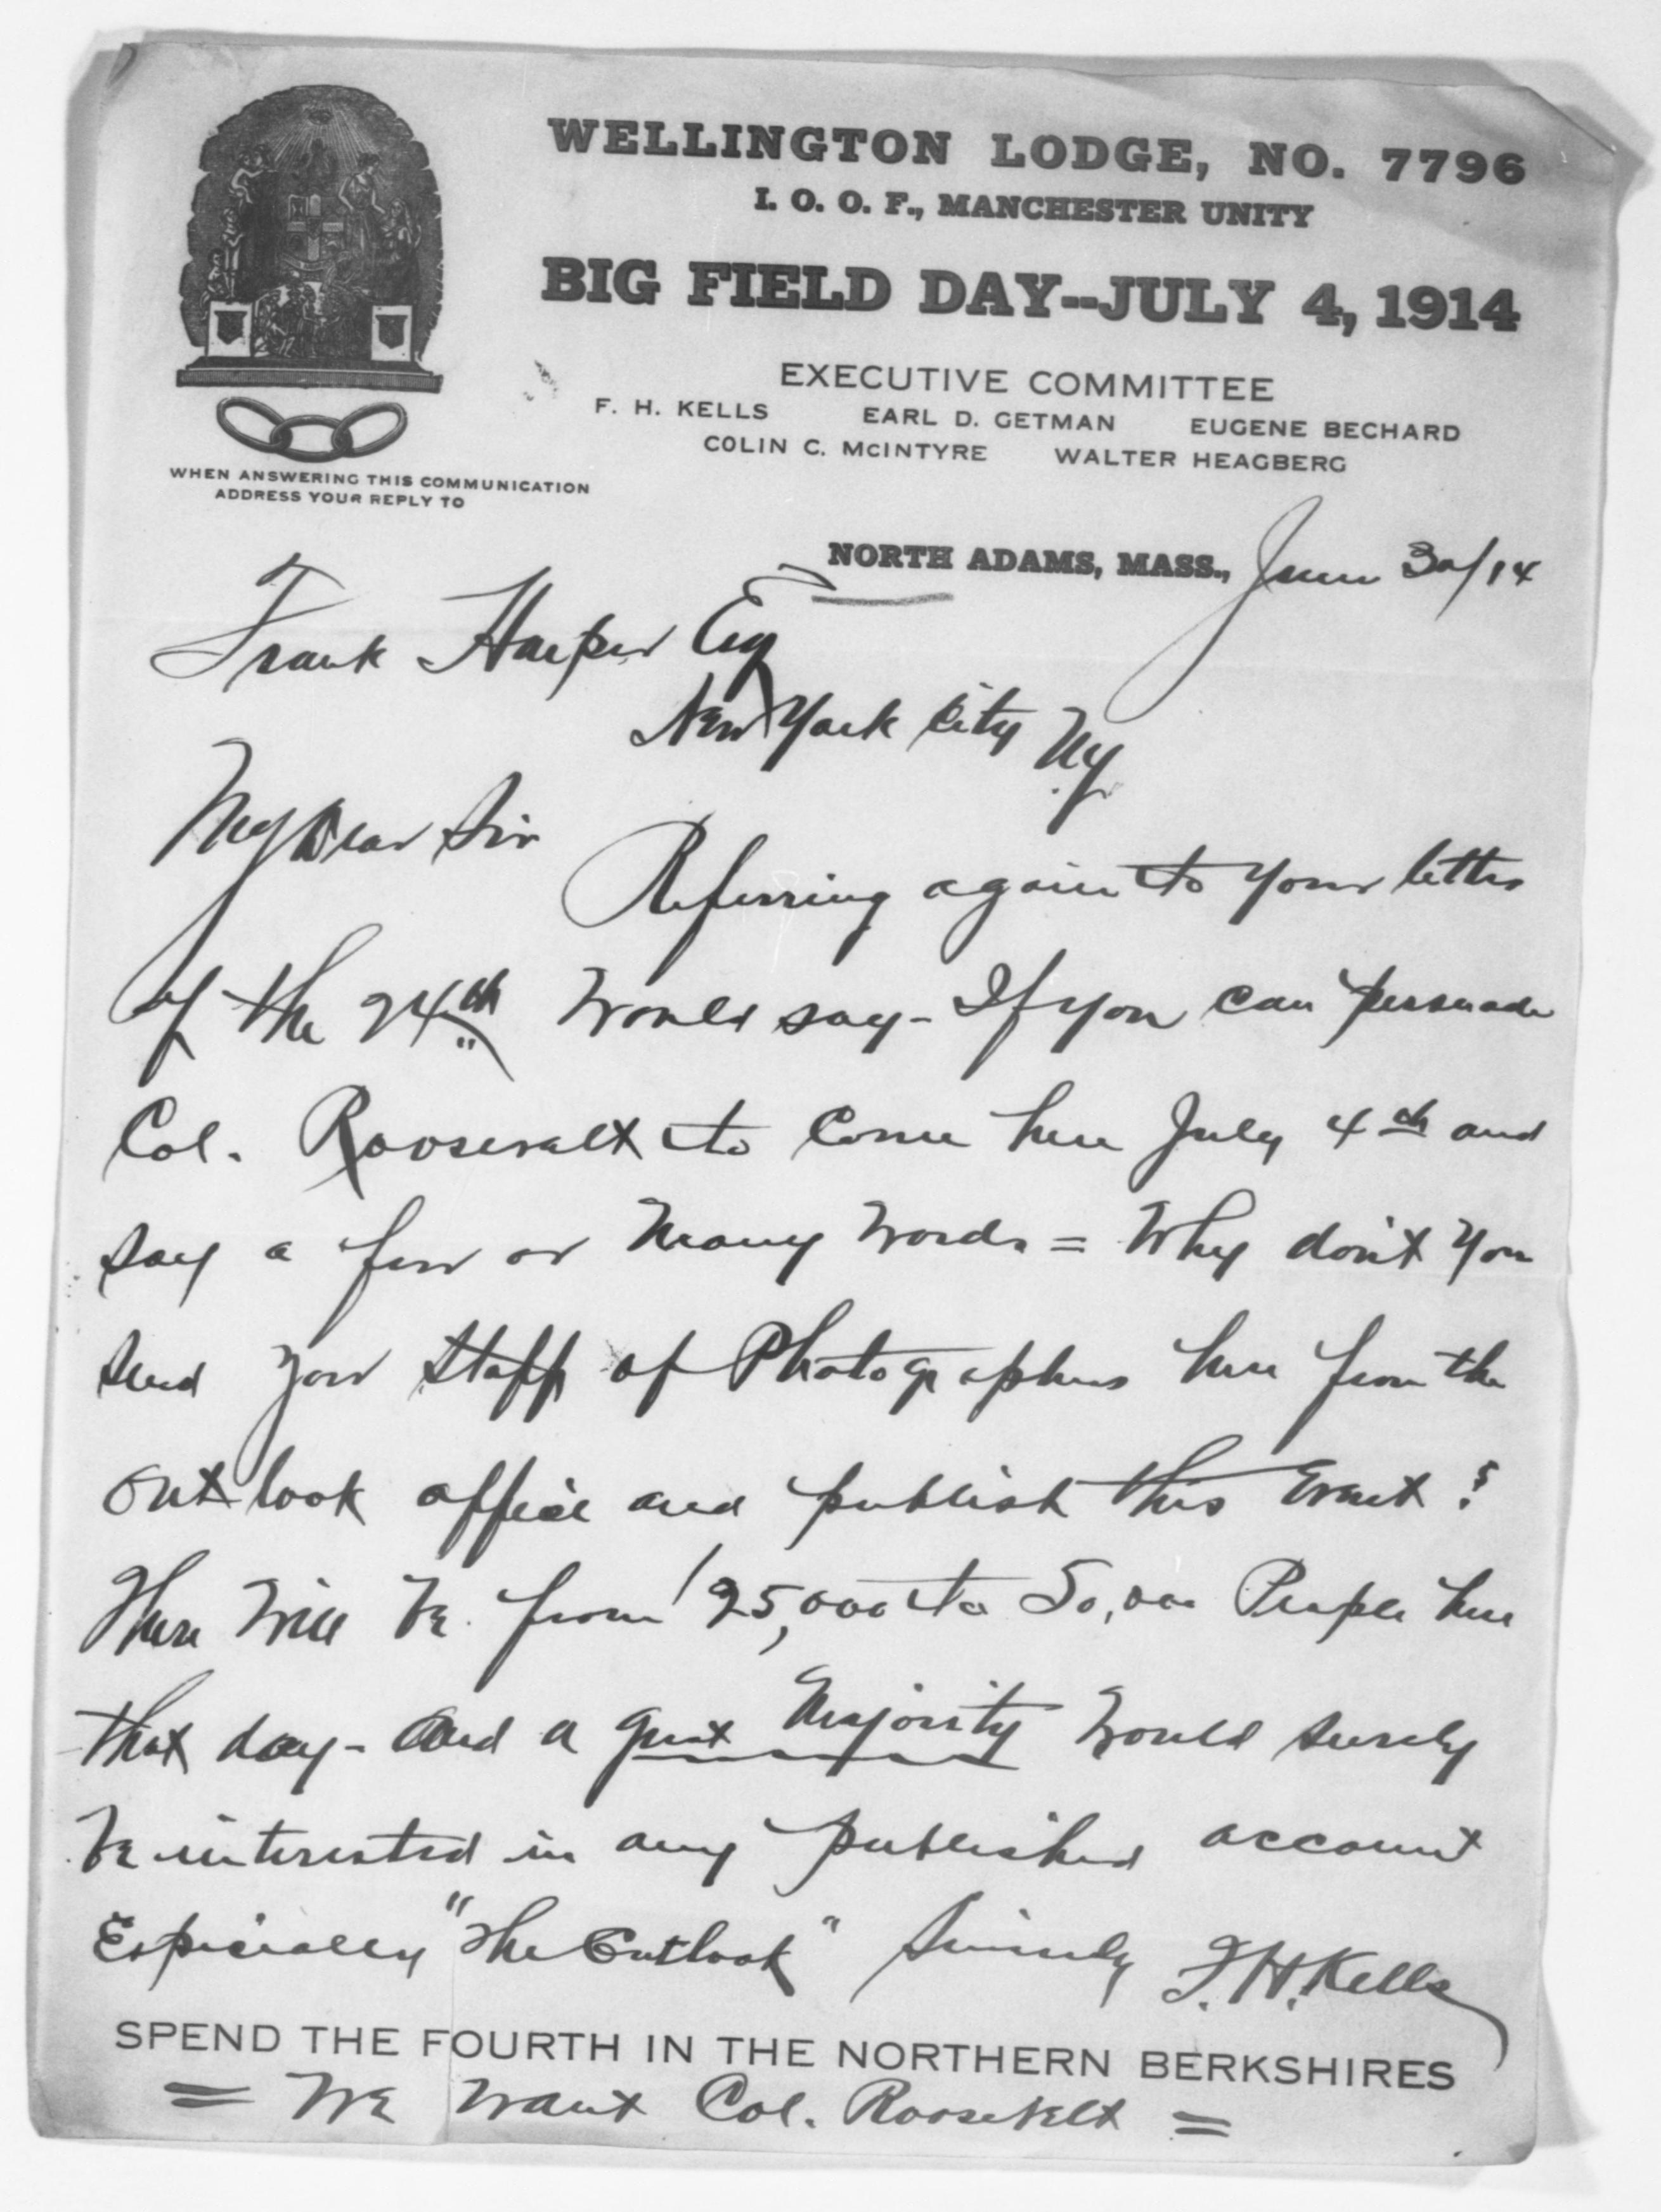 WELLINGTON LODGE, NO. 7796
I. O. O. F., MANCHESTER UNITY
BIG FIELD DAY--JULY 4, 1914
EXECUTIVE COMMITTEE
F. H. KELLS EARL D. GETMAN EUGENE BECHARD
COLIN C. McINTYRE WALTER HEAGBERG
WHEN ANSWERING THIS COMMUNICATION
ADDRESS YOUR REPLY TO
NORTH ADAMS, MASS., June 30/14
Frank Harper Esq
New York City NY.
My Dear Sir
Referring again to your letter
of the 24th would say - If you can persuade
Col. Roosevelt to come here July 4th and
say a few or many words = Why don't you
send your staff of Photographers here from the
outlook office and publish this Event?
There will be from 25,000 to 50,000 People here
that day - and a great Majority would surely
be interested in any published account
Especially "The Outlook" Sincerely F. H. Kells
SPEND THE FOURTH IN THE NORTHERN BERKSHIRES
= WE want Col. Roosevelt =